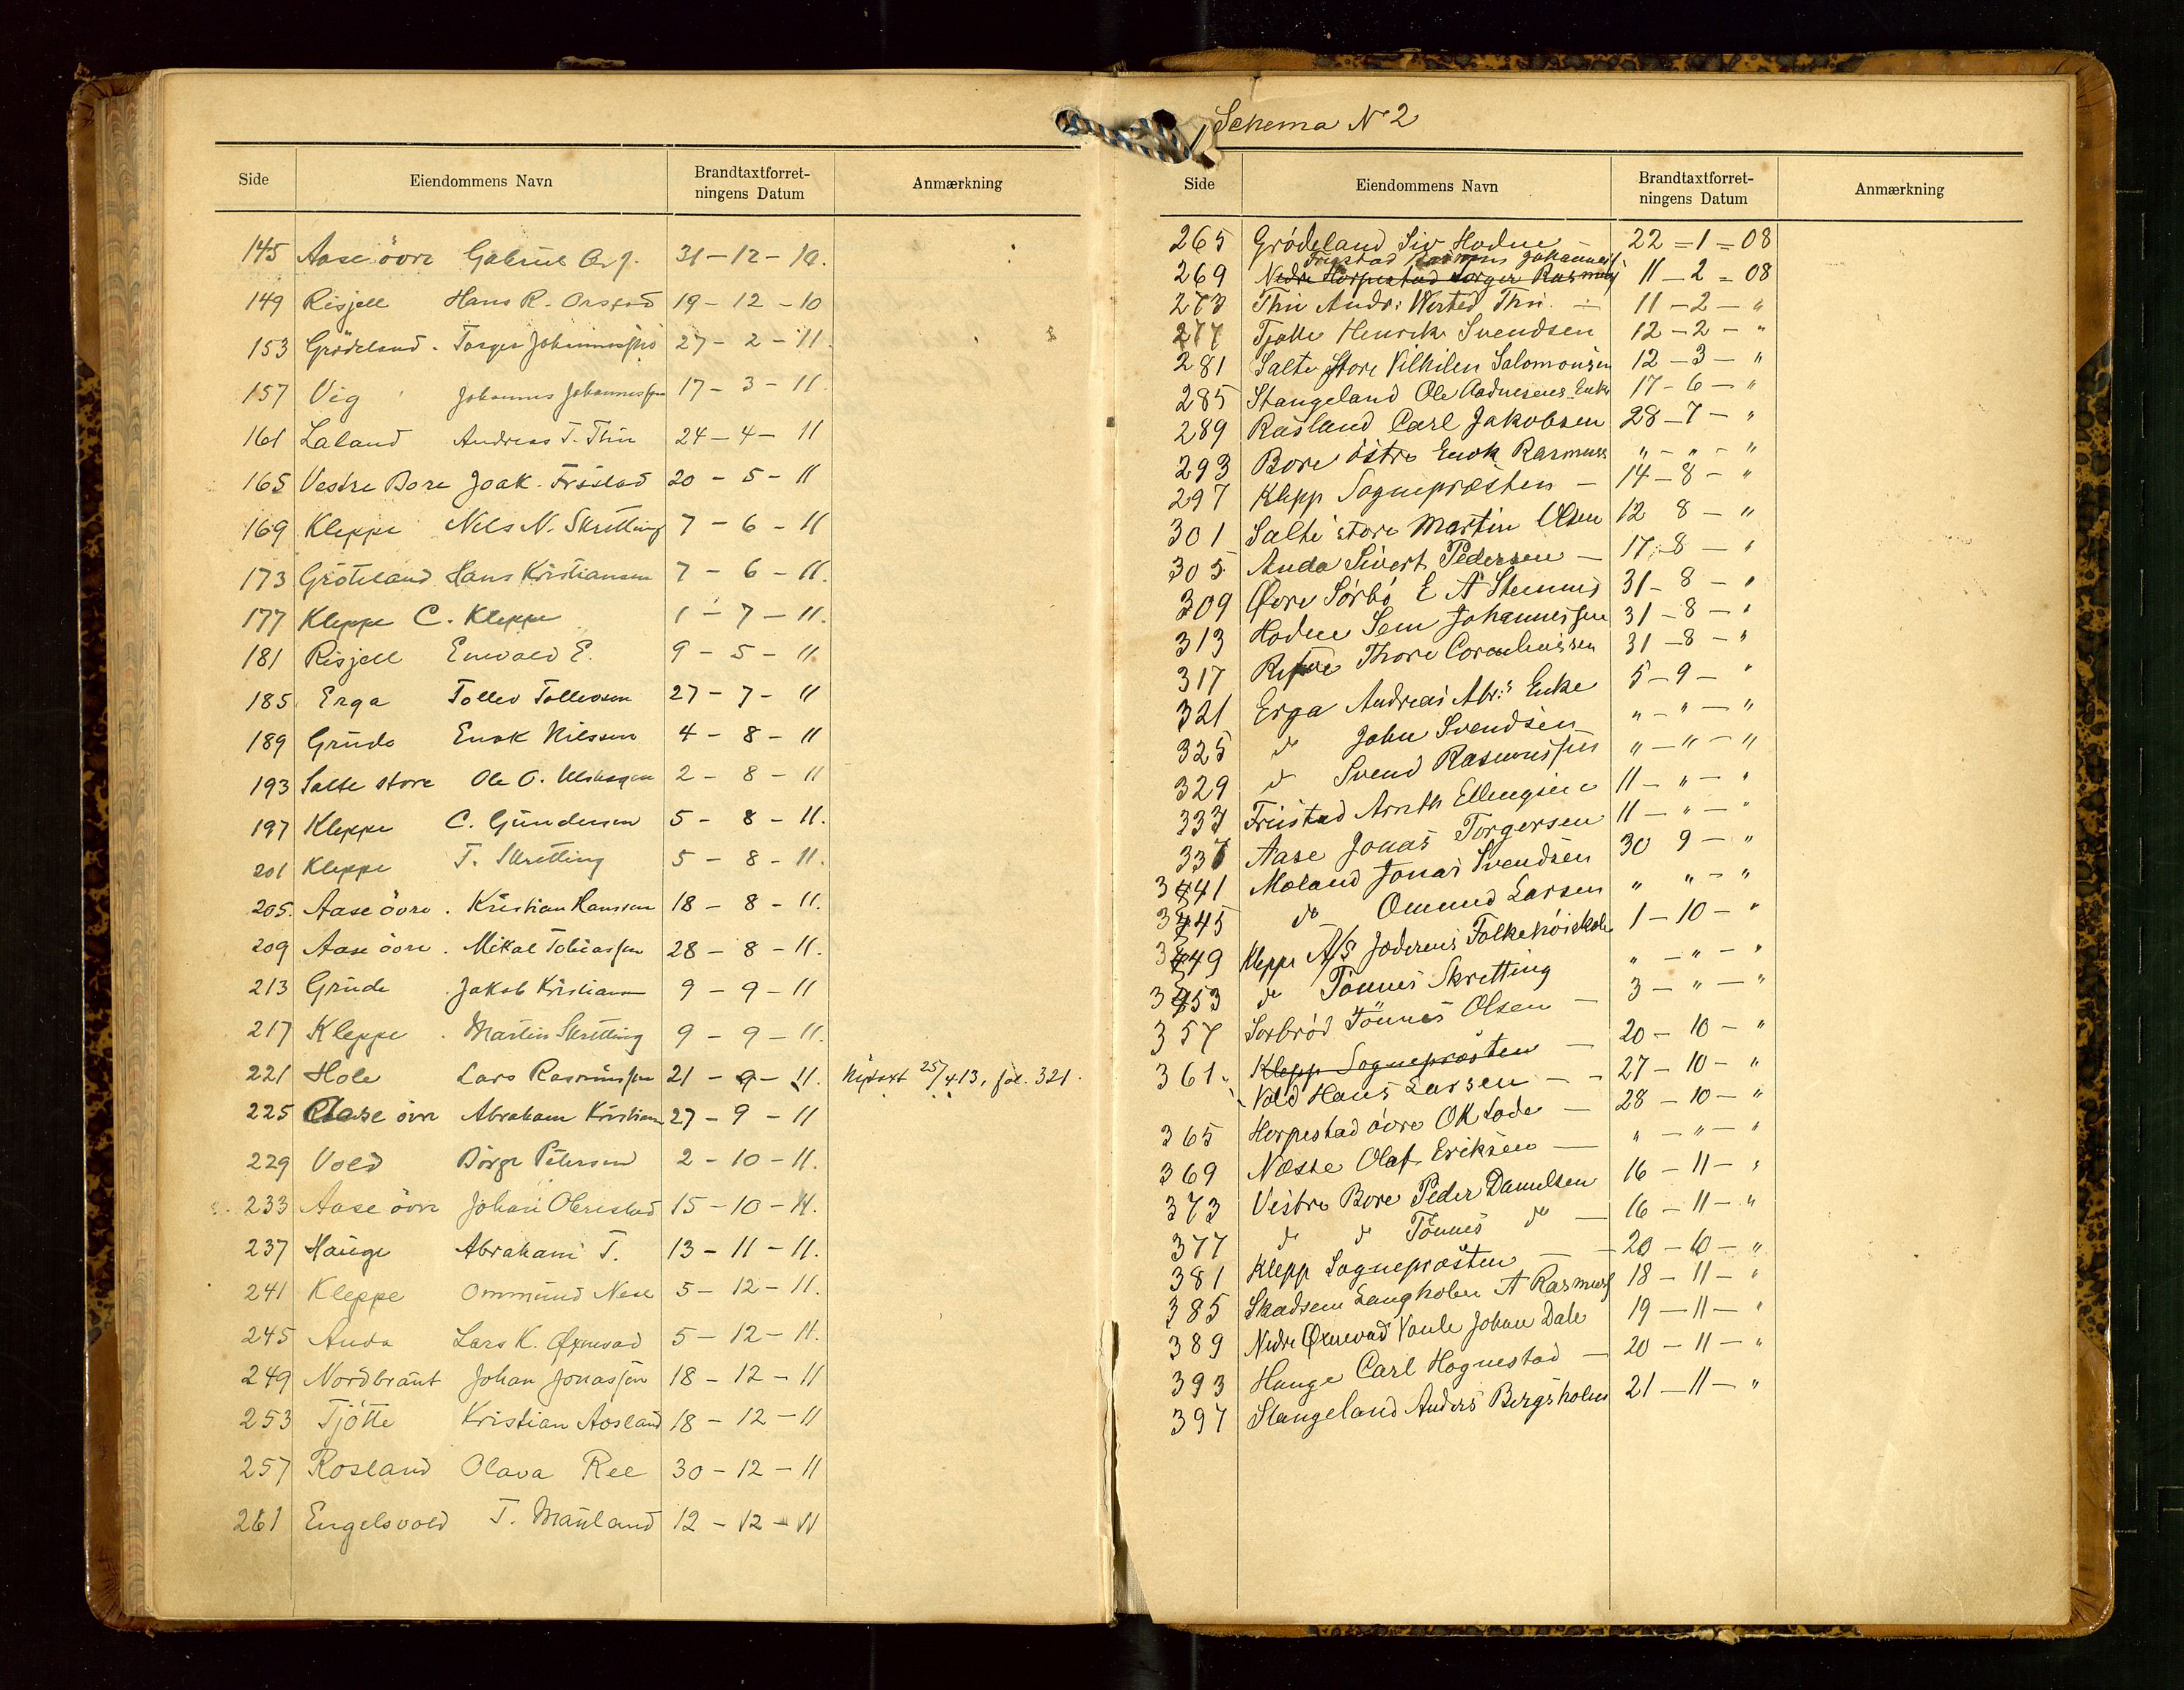 Side Eiendommens Navn Brandtaxtforret-ningens Datum Anmærkning
145 Aase övre Gabriel 31-12-10.
149 Risjell Hans R. Orstad 19-12-10
153 Grödeland. Torger Johannessen 27-2-11.
157 Vig Johannes Johannessen 17-3-11.
161 Laland Andreas T. Thu 24-4-11
165 Vestre Bore Joak. Fristad 20-5-11
169 Kleppe Nels N. Skretting 7-6-11
173 Gröteland Hans Kristiansen 7-6-11.
177 Kleppe C. Kleppe 1-7-11.
181 Risjell Enevald E. 9-5-11.
185 Erga Tollev Tollevsen 27-7-11
189 Grude Enok Nilssen 4-8-11
193 Salte store Ole O. 2-8-11
197 Kleppe C. Gundersen 5-8-11.
201 Kleppe T. Skretting 5-8-11.
205. Aase övre. Kristian Hanssen 18-8-11.
209 Aase övre. Mikal Tobiassen 28-8-11.
213 Grude Jakob Kristiansen 9-9-11
217 Kleppe. Martin Skretting 9-9-11.
221 Hole Lars Rasmussen 21-9-11. Nytaxt 25/4 13, fol. 321.
225 Aase övre Abraham Kristian 27-9-11
229 Vold Börge Petersen 2-10-11.
233 Aase övre Johan Obrestad 15-10-11.
237 Hauge Abraham T. 13-11-11.
241 Kleppe Ommund Nese 5-12-11.
245 Anda Lars K. Øxnevad 5-12-11.
249 Nordbraut Johan Jonassen 18-12-11
253 Tjötte Kristian Aosland 18-12-11
257 Rosland Olava Ree 30-12-11
261 Engelsvold T. Mauland 12-12-11
Schema N 2
Side Eiendommens Navn Brandtaxtforret-ningens Datum Anmærkning
265 Grödeland Siv Hodne 22-1-08
Fristad Rasmus Johannes
269 Nedre Horpestad Torger Rasmus 11-2-08
273 Thu Andr: Wersted Thu 11-2-"
277 Tjotte Henrik Svendsen 12-2-"
281 Salte Store Vilhelm Salomonsen 12-3-"
285 Stangeland Ole Aadnesens Enke 17-6-"
289 Rasland Carl Jakobsen 28-7-"
293 Bore östre Enok Rasmuss "-"-"
297 Klepp Sogneprosten - 14-8-"
301 Salte store Martin Olsen 12 8-"
305. Anda Sivert Pedersen - 17-8-"
309 Øvre Sörbö E A Stemnes 31-8-"
313 Hodne Sem Johannessen 31-8-"
317 Thore Corneliussen 31-8-"
321 Erga Andreas Abr:s Enke 5-9-"
325 do John Svendsen "-"-"
329 do Svend Rasmussen "-"-"
333 Friistad Arnth Ellingsen 11-"-"
337 Aase Jonas Torgersen 11-"-"
341 Moland Jonas Svendsen 30 9-"
345 do Omund Larsen " "-"
349 Kleppe A/S Jæderens Folkehöiskole 1-10-"
353 do Tönnes Skretting "-"-"
357 Sorbröd Tönnes Olsen - 3-"-"
361. Klepp Sogneprosten - 20-10-"
Vold Hans Larsen - - 27-10-"
365 Horpestad övre OK Lode - 28-10-"
369 Næste Olaf Eriksen - "-"-"
373 Vestre Bore Peder Danielsen 16-11-"
377 do do Tönnes do - 16-11-"
381 Klepp Sogneprosten - - 20-10-"
385 Skadsem Langholen A Rasmus 18-11-"
389 Nedre Øxnevad Vaule Johan Dale 19-11-"
393 Hauge Carl Hognestad - 20-11-"
397 Stangeland Anders Bergsholm 21-11-"